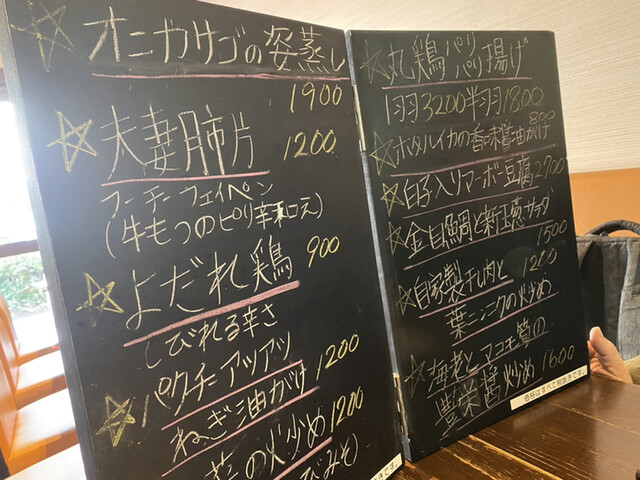 ☆オニカサゴの姿蒸し
1900
☆夫妻肺片
1200
フーチーフェイペン
(牛もつのピリ辛和え)
☆よだれ鶏 900
しびれる辛さ
☆パクチーアツアツ
ねぎ油がけ 1200
の炒め 1200
びみそ)
☆丸鶏パリパリ揚げ
1羽3200半羽1800
☆ホタルイカの香味醤油がけ 800
☆白子入りマーボー豆腐 2700
☆金目鯛と新玉葱サラダ
1500
☆自家製干し肉と 1200
葉ニンニクの炒め
☆海老とマコモ筍の
豊栄醤炒め 1600
価格はすべて税抜きです。
きです。